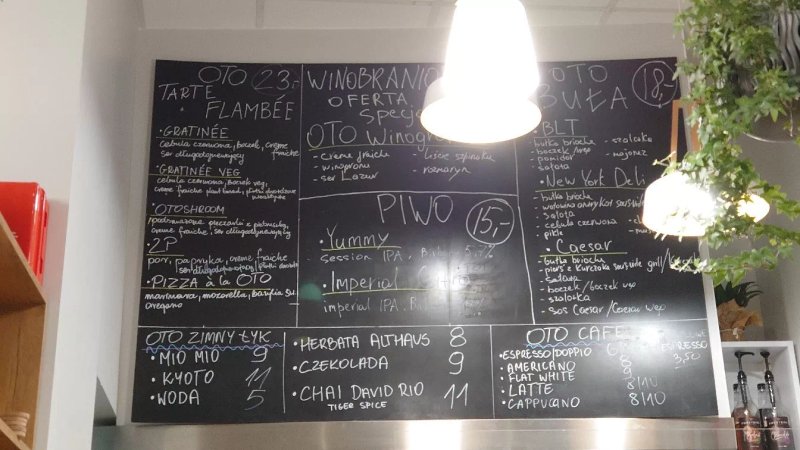 OTO 23,-
TARTE
FLAMBÉE
• GRATINÉE
cebula czerwona, boczek, creme fraiche
ser długodojrzewający
• GRATINÉE VEG
cebula czerwona, boczek veg,
creme fraiche plant based,
• OTOSHROOM
podsmażane pieczarki z pietruszką,
creme fraiche, ser długodojrzewający
• ZP
por, papryka, creme fraiche
ser długodojrzewający
• PIZZA à la OTO
marinara, mozarella, bazylia
oregano
WINOBRANIO
OFERTA
SPECJ
OTO Winog
- creme fraiche
- winogrono
- ser Lazur
- liście szpinaku
- rozmaryn
PIWO 15,-
• Yummy
session IPA,
• Imperial
imperial IPA
OTO 18,-
BUŁA
• BLT
bułka brioche
- boczek / veg
- pomidor
- sałata
- szalotka
- majonez
• New York Deli
- bułka brioche
- sałata
- cebula czerwona
- pikle
• Caesar
- bułka brioche
- piers z kurczaka sous vide grill
- sałata
- boczek / boczek veg
- szalotka
- sos Caesar / Caesar veg
OTO ZIMNY ŁYK
• MIO MIO 9
• KYOTO 11
• WODA 5
• HERBATA ALTHAUS 8
• CZEKOLADA 9
• CHAI DAVID RIO 11
TIGER SPICE
OTO CAFE
• ESPRESSO/DOPPIO 6
• AMERICANO 8
• FLAT WHITE 9
• LATTE 8/10
• CAPPUCANO 8/10
ESPRESSO
3,50